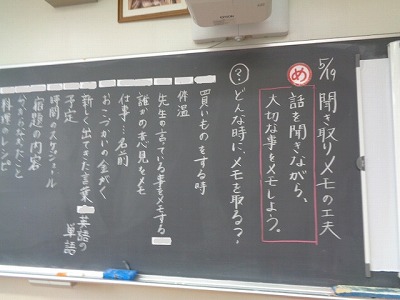 5/19 聞き取りメモの工夫
め 話を聞きながら、
大切な事をメモしよう。
? どんな時に、メモを取る?
買いものをする時
体温
先生の言っている事をメモする
誰かの意見をメモ
仕事…名前
おこづかいの金がく
新しく出てきた言葉 英語の単語
予定
時間のスケジュール
宿題の内容
わからなかったこと
料理のレシピ